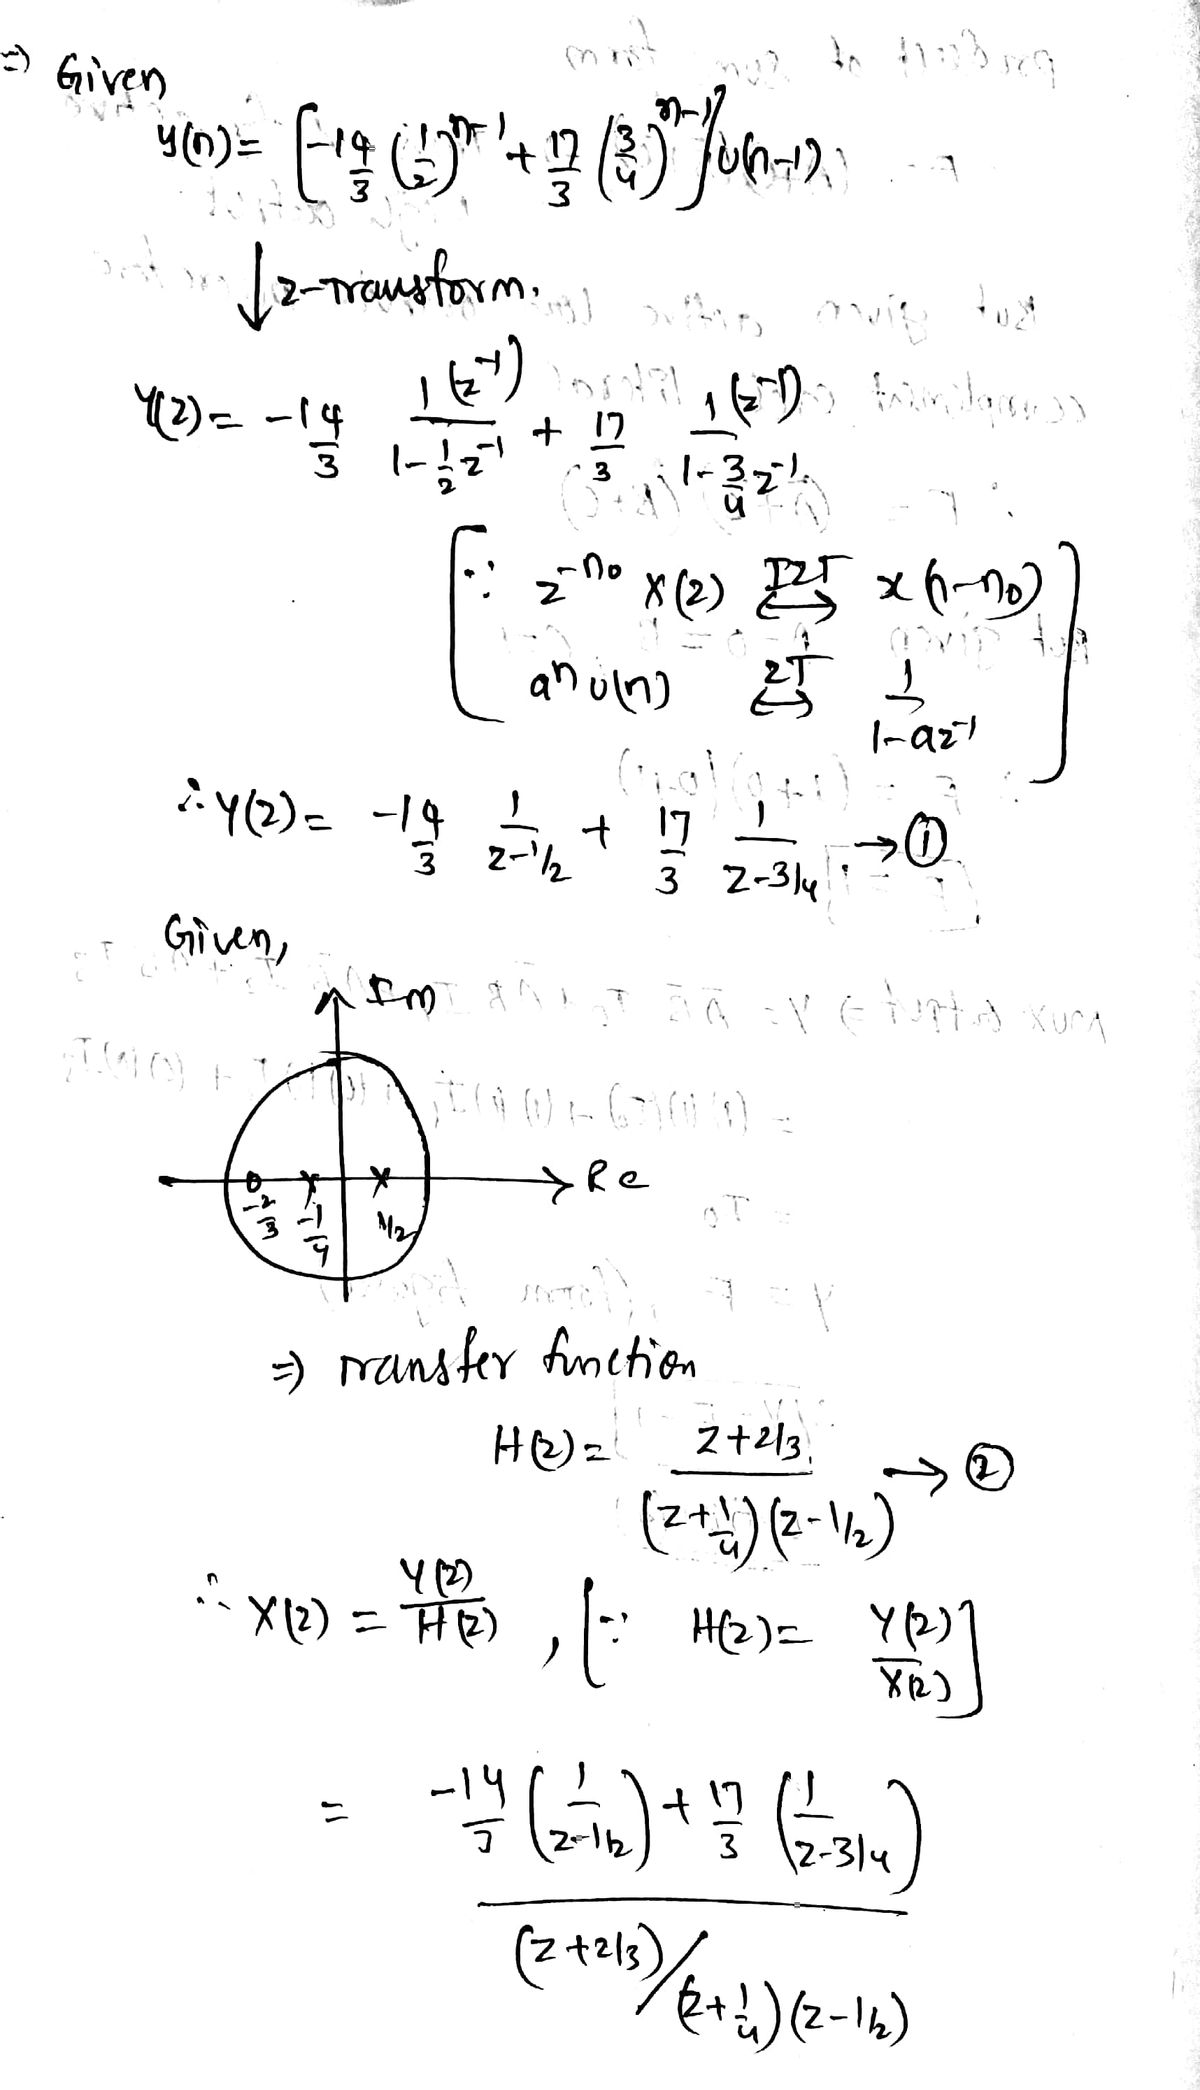 ⇒ Given
y(n) = [-14/3 (1/2)^n-1 + 17/3 (3/4)^n-1] u(n-1)
↓ z-Transform.
Y(z) = -14/3 1(z^-1)/(1-1/2 z^-1) + 17/3 1(z^-1)/(1-3/4 z^-1)
[∵ z^-n0 X(z) IZT ↔ x(n-n0)
a^n u(n) ZT ↔ 1/(1-az^-1)]
∴ Y(z) = -14/3 1/(z-1/2) + 17/3 1/(z-3/4) → ①
Given,
Im
Re
-2/3 -1/4 1/2
⇒ Transfer function
H(z) = (z+2/3)/((z+1/4)(z-1/2)) → ②
∴ X(z) = Y(z)/H(z), [∵ H(z) = Y(z)/X(z)]
= (-14/3 (1/(z-1/2)) + 17/3 (1/(z-3/4)))
(z+2/3)/(z+1/4)(z-1/2)